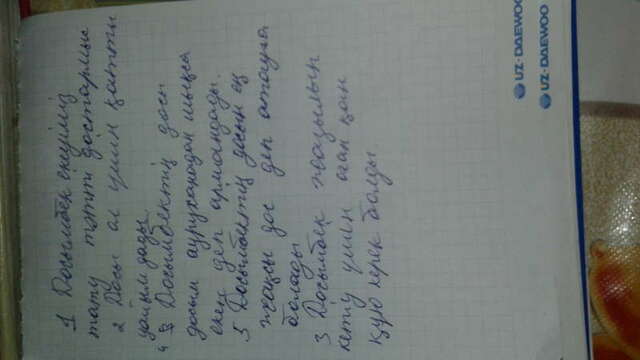 1 Досымбек екеуіміз
тату тәтті достармыс
2 Досы ол үшін қатты
уайымдады.
4 Досымбектің досы
досым ауруханадан шықса
екен деп армандады.
5 Досымбектің досын ең
жақсы дос деп атауға
болады
3 Досымбек жазылып
кетіу үшін оған қан
құю керек болды
UZ-DAEWOO
UZ-DAEWOO